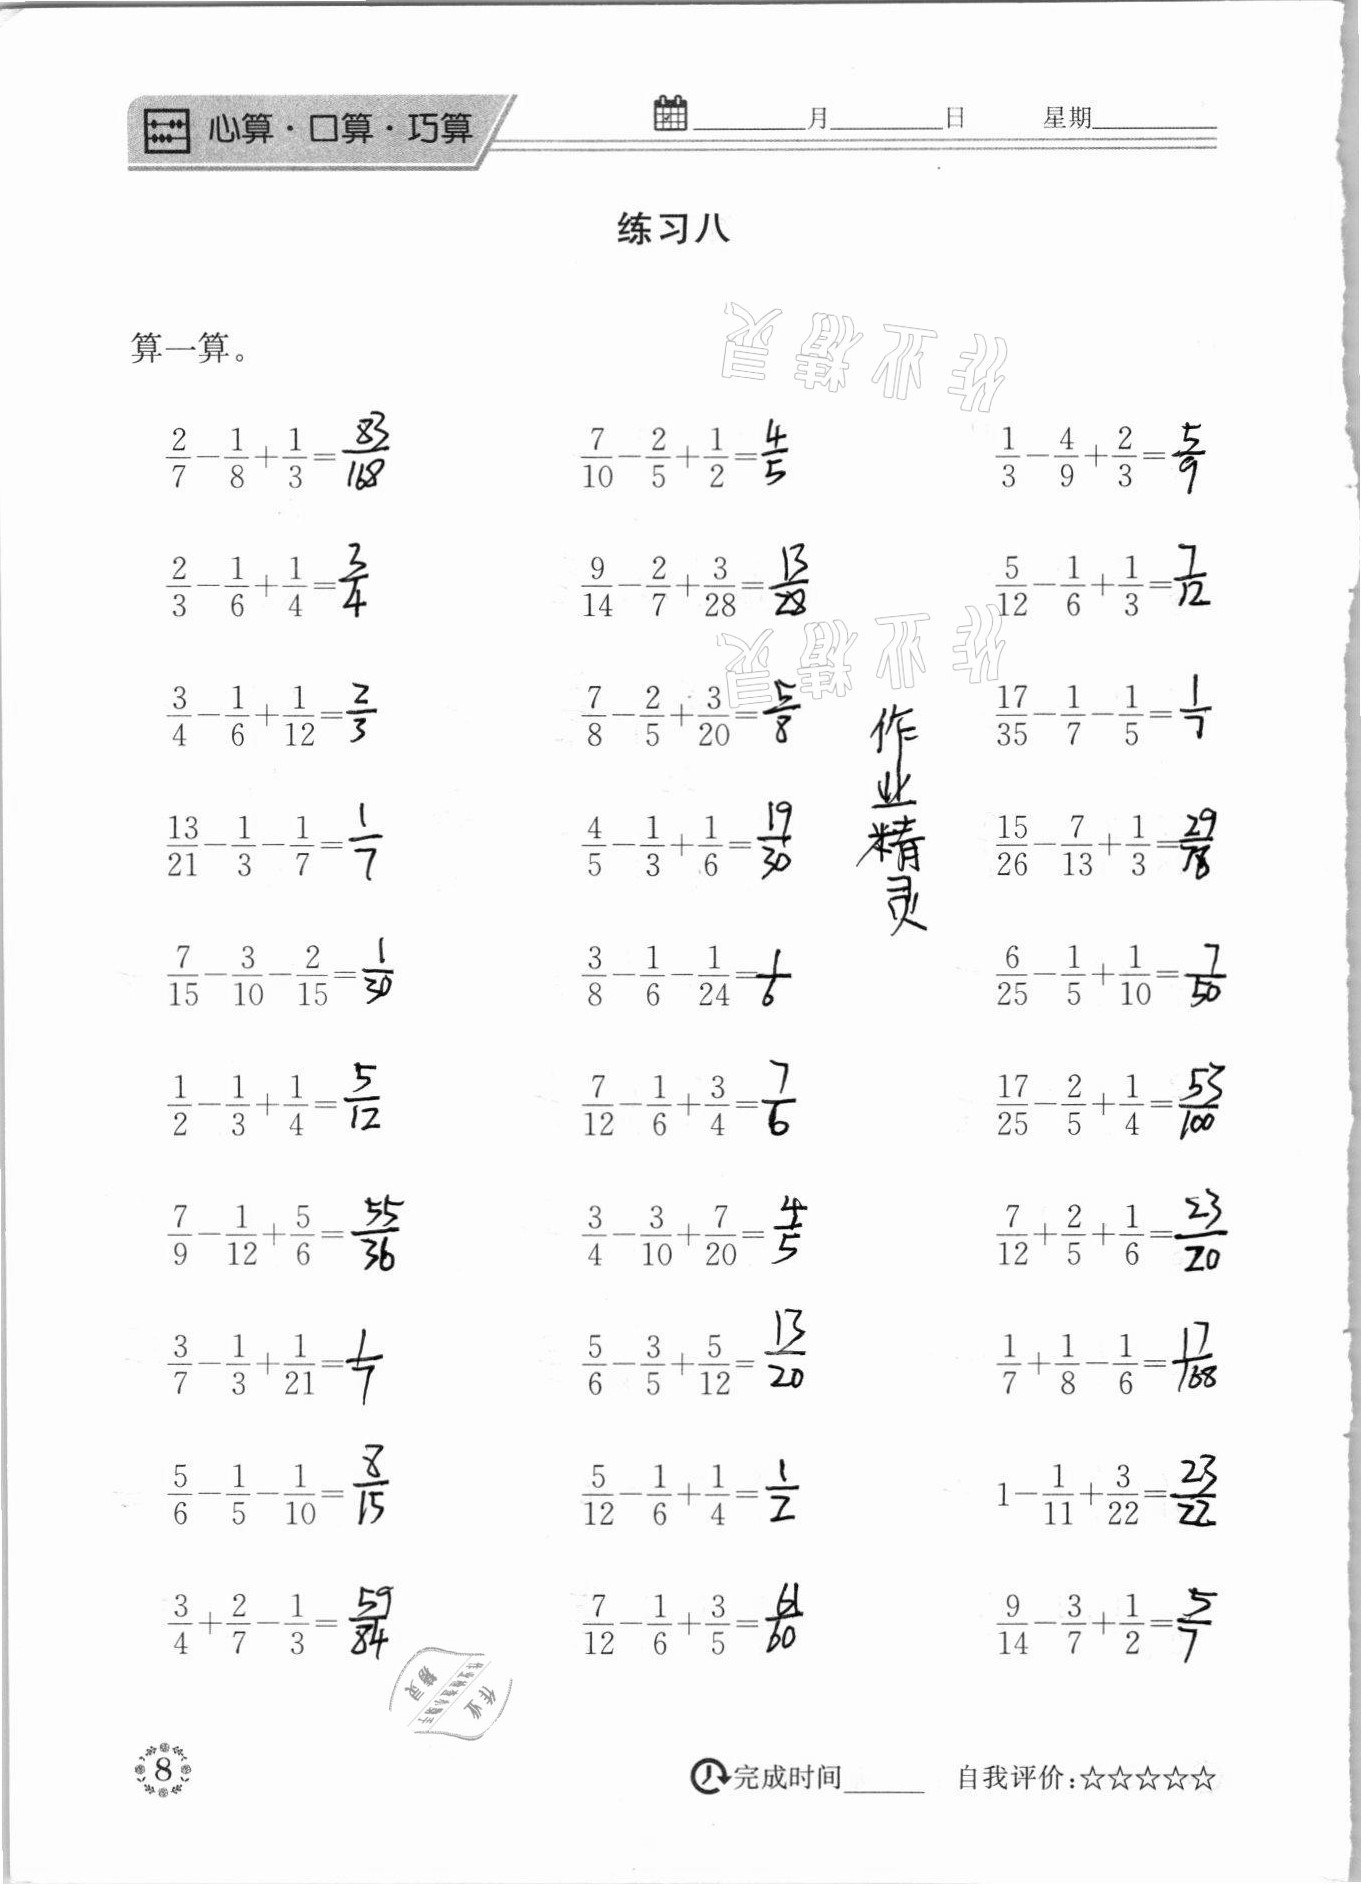 心算·口算·巧算 ____月____日 星期____
练习八
算一算。
2/7-1/8+1/3=83/168 7/10-2/5+1/2=4/5 1/3-4/9+2/3=5/9
2/3-1/6+1/4=3/4 9/14-2/7+3/28=13/28 5/12-1/6+1/3=7/12
3/4-1/6+1/12=2/3 7/8-2/5+3/20=5/8 17/35-1/7-1/5=1/7
13/21-1/3-1/7=1/7 4/5-1/3+1/6=19/30 15/26-7/13+1/3=29/78
7/15-3/10-2/15=1/30 3/8-1/6-1/24=1/6 6/25-1/5+1/10=7/50
1/2-1/3+1/4=5/12 7/12-1/6+3/4=7/6 17/25-2/5+1/4=53/100
7/9-1/12+5/6=55/36 3/4-3/10+7/20=4/5 7/12+2/5+1/6=23/20
3/7-1/3+1/21=1/7 5/6-3/5+5/12=13/20 1/7+1/8-1/6=17/168
5/6-1/5-1/10=8/15 5/12-1/6+1/4=1/2 1-1/11+3/22=23/22
3/4+2/7-1/3=59/84 7/12-1/6+3/5=61/60 9/14-3/7+1/2=5/7
作业精灵
作业精灵
作业精灵
作业
精灵
8 完成时间____ 自我评价:☆☆☆☆☆